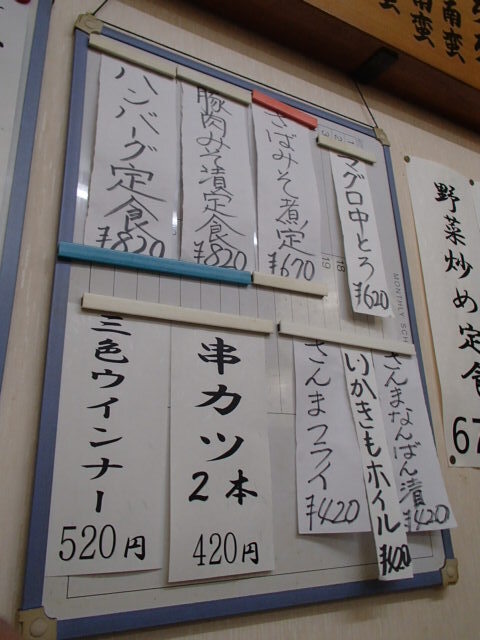 マグロ中とろ
¥620
さばみそ煮定
¥670
豚肉みそ漬定食
¥820
ハンバーグ定食
¥820
さんまなんばん漬
¥420
いかきもホイル
¥420
さんまフライ
¥420
串カツ
2本
420円
三色ウインナー
520円
野菜炒め定食
67
MONTHLY SCH
18
19